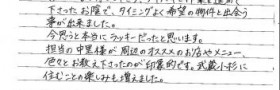 下さったお陰で、タイミングよく希望の物件と出会う
事が出来ました。
今思うと本当にラッキーだったと思います。
担当の中里様が周辺のオススメのお店やメニュー、
色々とお教え下さったのが印象的です。武蔵小杉に
住むことの楽しみも増えました。